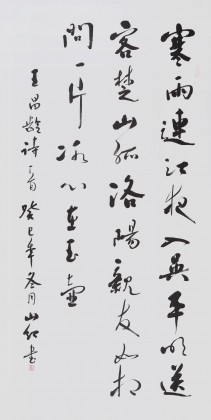 寒雨連江夜入吳平明送
客楚山孤洛陽親友如相
問一片冰心在玉壺
王昌齡詩一首癸巳年冬月山紅書